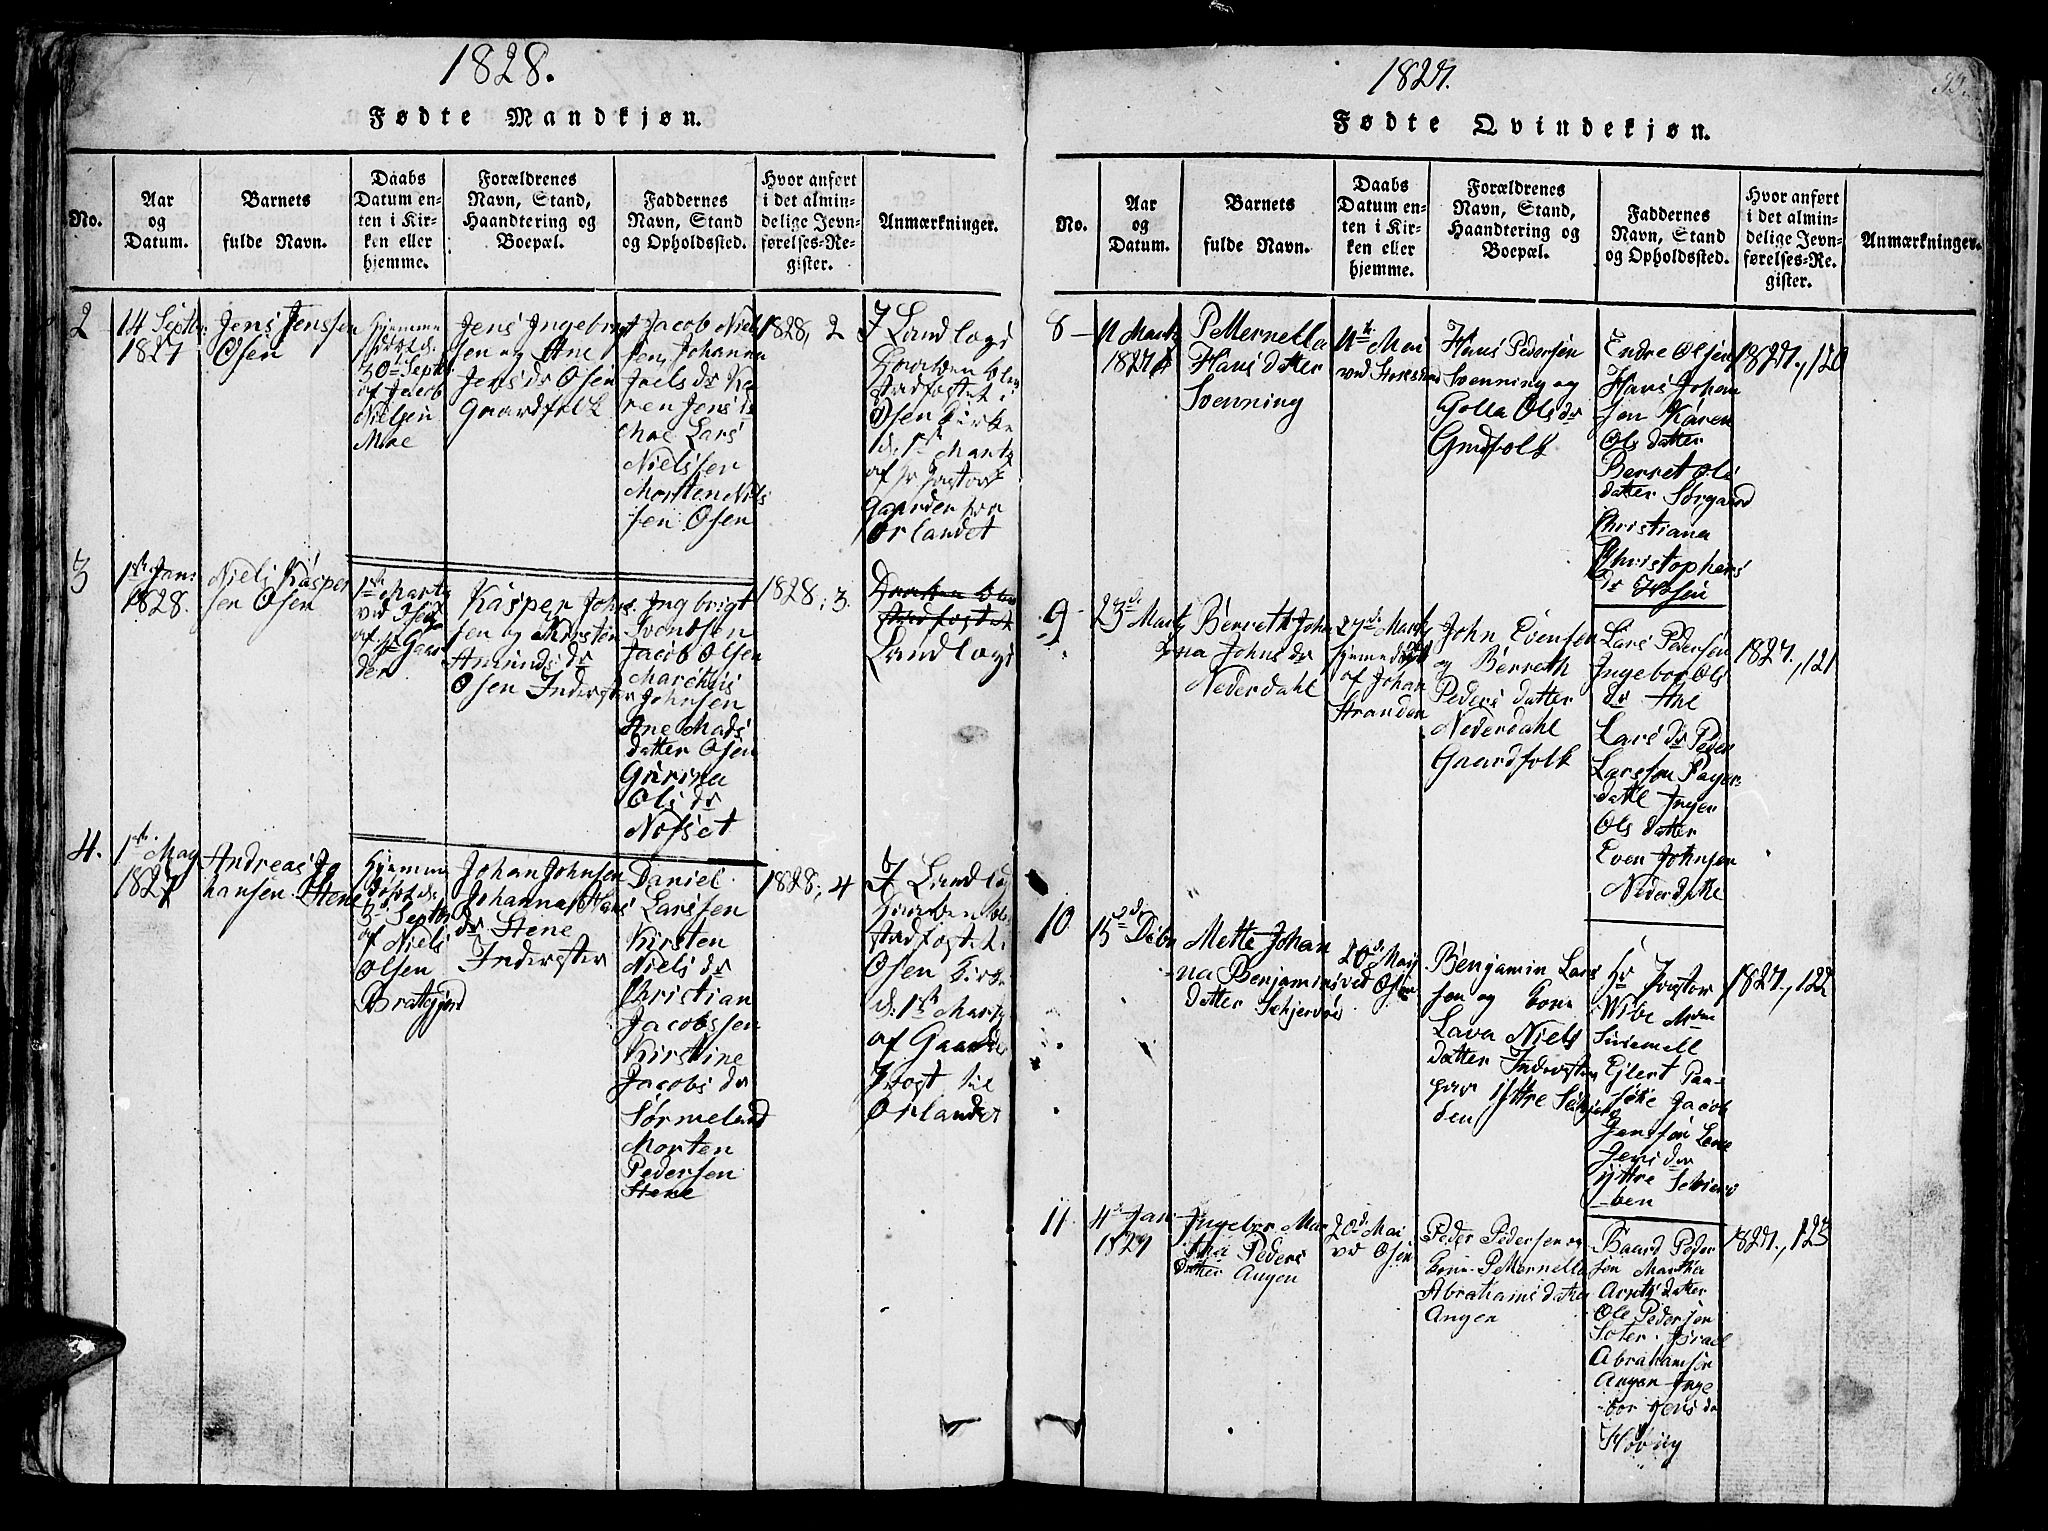 1828.
Fødte Mandkjøn.
No.
Aar
og
Datum.
Barnets
fulde Navn.
Daabs
Datum en-
ten i Kir-
ken eller
hjemme.
Forældrenes
Navn, Stand,
Haandtering og
Boepæl.
Faddernes
Navn, Stand
og Opholdssted.
Hvor anført
i det almin-
delige Jevn-
førelses-Re-
gister.
Anmærkninger.
2
14 Septbr
1827
Jens Jenssen
Osen
Hjemme
døbt d.
30te Septb
af Jacob
Nielsen
Moe
Jens Ingebrigt
sen og Ane
Jens dr Osen
Gaardfolk
Jacob Niel
sen, Johanna
Joels dr Ka
ren Jens dr
Moe Lars
Nielssen
Morten Nils
sen Osen
1828, 2
I Landlogi
Daaben blev
stadfæstet i
Osen Kirke
d. 1ste Martz
af Hr Pastor
Gaarder fra
Ørlandet
3
1ste Jan:
1828.
Niels Kasper
sen Osen
1ste Martz
ved Osen
af Hr Gaar
der
Kasper Johns
sen og Kirstin
Amunds dr
Osen Inderster
Ingbrigt
Svendsen
Jacob Olsen
Marethis
Johnsen
Ane Mads
datter Osen
Gurina
Ols dr
Nofset
1828, 3.
Daaben blev
stadfæstet
Landlogi
4.
1ste May
1827
Andreas Jo
hansen Stene
Hjemme
døbt d.
3 Septbr
af Niels
Olsen
Bratgjerd
Johan Johnsen
Johanna Hans
dr Stene
Inderster
Daniel
Larssen
Kirsten
Niels dr
Christian
Jacobssen
Kirstine
Jacobs dr
Sørmeland
Morten
Pedersen
Stene
1828, 4
I Landlog
Daaben blev
stadfæstet i
Osen Kirke
d. 1ste Martz
af Gaarder
Provst til
Ørlandet
1827.
93.
Fødte Qvindekjøn.
No.
Aar
og
Datum.
Barnets
fulde Navn.
Daabs
Datum en-
ten i Kir-
ken eller
hjemme.
Forældrenes
Navn, Stand,
Haandtering og
Boepæl.
Faddernes
Navn, Stand
og Opholdssted.
Hvor anført
i det almin-
delige Jevn-
førelses-Re-
gister.
Anmærkninger.
8
11 Martz
1827
PeMernella
Hans datter
Svenning
4de Mai
ved
Hans Pedersen
Svenning og
Golla Ols dr
Grdfolk
Endre Olsen
Hans Johan
sen Karen
Ols datter
Berret Ols
datter Sørgaard
Christiana
Christophers
dr Hosen
1827, 120
9
23de Martz
Berreth Joha
na Johns dr
Nederdahl
27de Martz
hjemedøbt
af Johan
Stranden
John Evensen
og Berreth
Peders datter
Nederdahl
Gaardfolk
Lars Pedersen
Ingebor Ols
dr Ane
Lars dr Peder
Larssen
Inger
Ols datter
Even Johnsen
Nederdahl
1827, 121
10
15de Debr
Mette Johan
na Benjamins
datter Schjervøe
20de Mai
ved Osen
Benjamin Lars
sen og Kone
Lava Niels
datter Inderster
paa Yttre Schjer
den
Hr Pastor
Wibe Mdm
Ejlert Paa-
ske Jacob
Jenssen Lene
Jens dr
Yttre Schier
ven
1827, 122
11
4de Jan
1827
Ingebor Mar
tha Peders
datter Angen
20de Mai
ved Osen
Peder Pedersen og
Kone PeMernella
Abrahams datter
Angen
Baard Peder
sen Martha
Arntz datter
Ole Pedersen
Soter. Israel
Abrahamsen
Angen Inge
bor Jens dr
Høvig
1827, 123